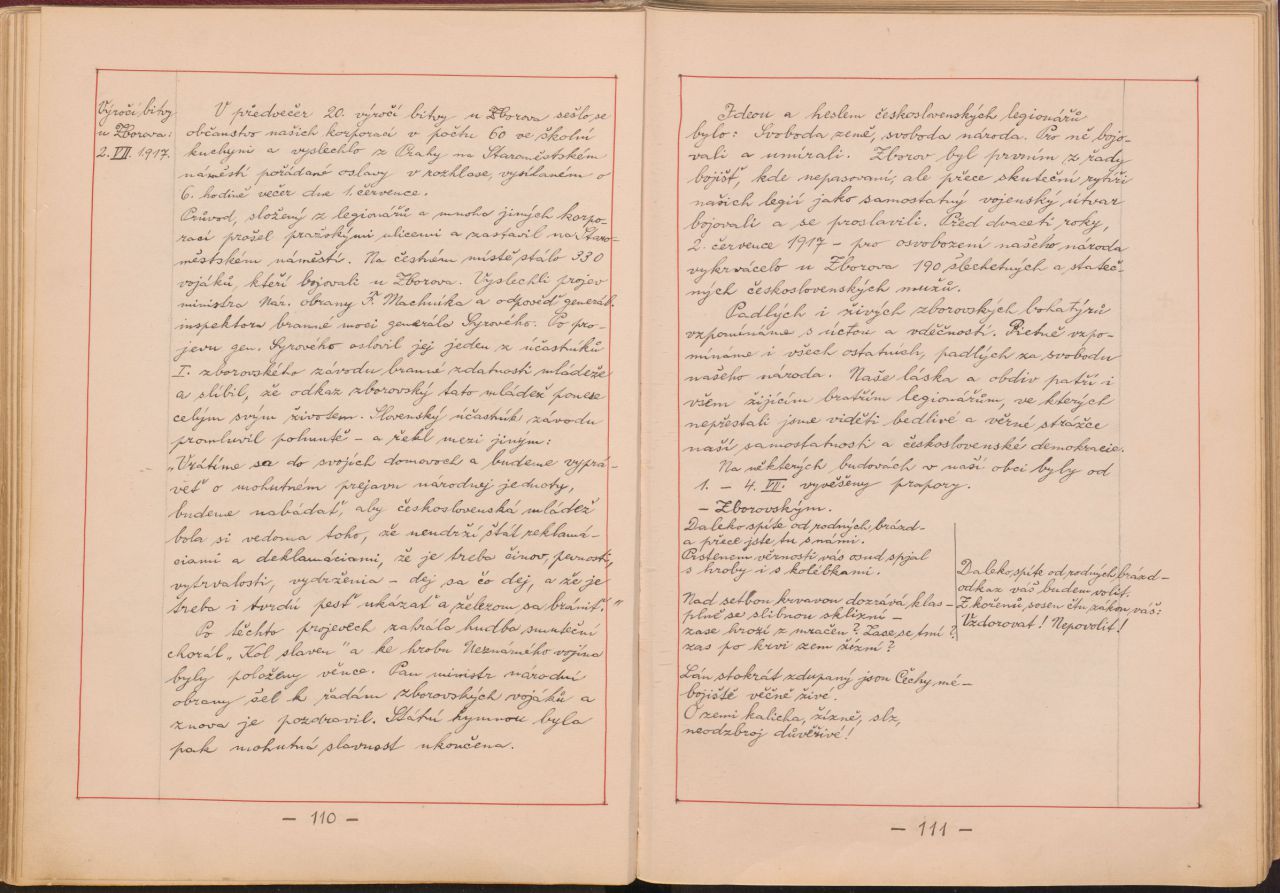 Výročí bitvy
u Zborova:
2. VII. 1917.
V předvečer 20. výročí bitvy u Zborova sešlo se
občanstvo našich korporací v počtu 60 ve školní
kuchyni a vyslechlo z Prahy na Staroměstském
náměstí pořádané oslavy v rozhlase, vysílaném o
6. hodině večer dne 1. července.
Průvod, složený z legionářů a mnoha jiných korpo-
rací prošel pražskými ulicemi a zastavil na Staro-
městském náměstí. Na čestném místě stálo 330
vojáků, kteří bojovali u Zborova. Vyslechli projev
ministra Nár. obrany F. Machníka a odpověď generál.
inspektora branné moci generála Syrového. Po pro-
jevu gen. Syrového oslovil jej jeden z účastníků
I. zborovského závodu branné zdatnosti mládeže
a slíbil, že odkaz zborovský tato mládež ponese
celým svým životem. Slovenský účastník závodu
promluvil pohnutě – a řekl mezi jiným:
„Vrátíme sa do svojich domovoch a budeme vyprá-
veť o mohutném prejavu národnej jednoty,
budeme nabádať, aby československá mládež
bola si vedoma toho, že nendrží štát reklamá-
ciami a deklamáciami, že je treba činov, pevnosti,
vytrvalosti, vydrženia – dej sa čo dej, a že je
treba i tvrdú pesť ukázať a železom sa brániť."
Po těchto projevech zahrála hudba smuteční
chorál „Kol slaven" a ke hrobu Neznámého vojína
byly položeny věnce. Pan ministr národní
obrany šel k řadám zborovských vojáků a
znova je pozdravil. Státní hymnou byla
pak mohutná slavnost ukončena.
– 110 –
Ideou a heslem československých legionářů
bylo: Svoboda země, svoboda národa. Pro ně bojo-
vali a umírali. Zborov byl prvním z řady
bojišť, kde nepasovaní, ale přece skuteční rytíři
našich legií jako samostatný vojenský útvar
bojovali a se proslavili. Před dvaceti roky,
2. července 1917 – pro osvobození našeho národa
vykrvácelo u Zborova 190 šlechetných a stateč-
ných československých mužů.
Padlých i živých zborovských bohatýrů
vzpomínáme s úctou a vděčností. Pietně vzpo-
mínáme i všech ostatních, padlých za svobodu
našeho národa. Naše láska a obdiv patří i
všem žijícím bratřím legionářům, ve kterých
nepřestali jsme viděti bedlivé a věrné strážce
naší samostatnosti a československé demokracie.
Na některých budovách v naší obci byly od
1. – 4. VII. vyvěšeny prapory.
– Zborovským.
Daleko spíte od rodných brázd –
a přece jste tu s námi.
Prstenem věrnosti vás osud spjal
s hroby i s kolébkami.
Nad setbou krvavou dozrává klas –
plně se slibnou sklizní –
zase hrozí z mračen? Zase se tmí?
zas po krvi zem žízní?
Lán stokrát zdupaný jsou Čechy mé –
bojiště věčně živé.
Ó zemi kalicha, žízně, slz,
neodzbroj důvěřivé!
Daleko spíte od rodných brázd –
odkaz váš budem volit.
Z kořenů sosen čtu zákon váš:
Vzdorovat! Nepovolit!
– 111 –